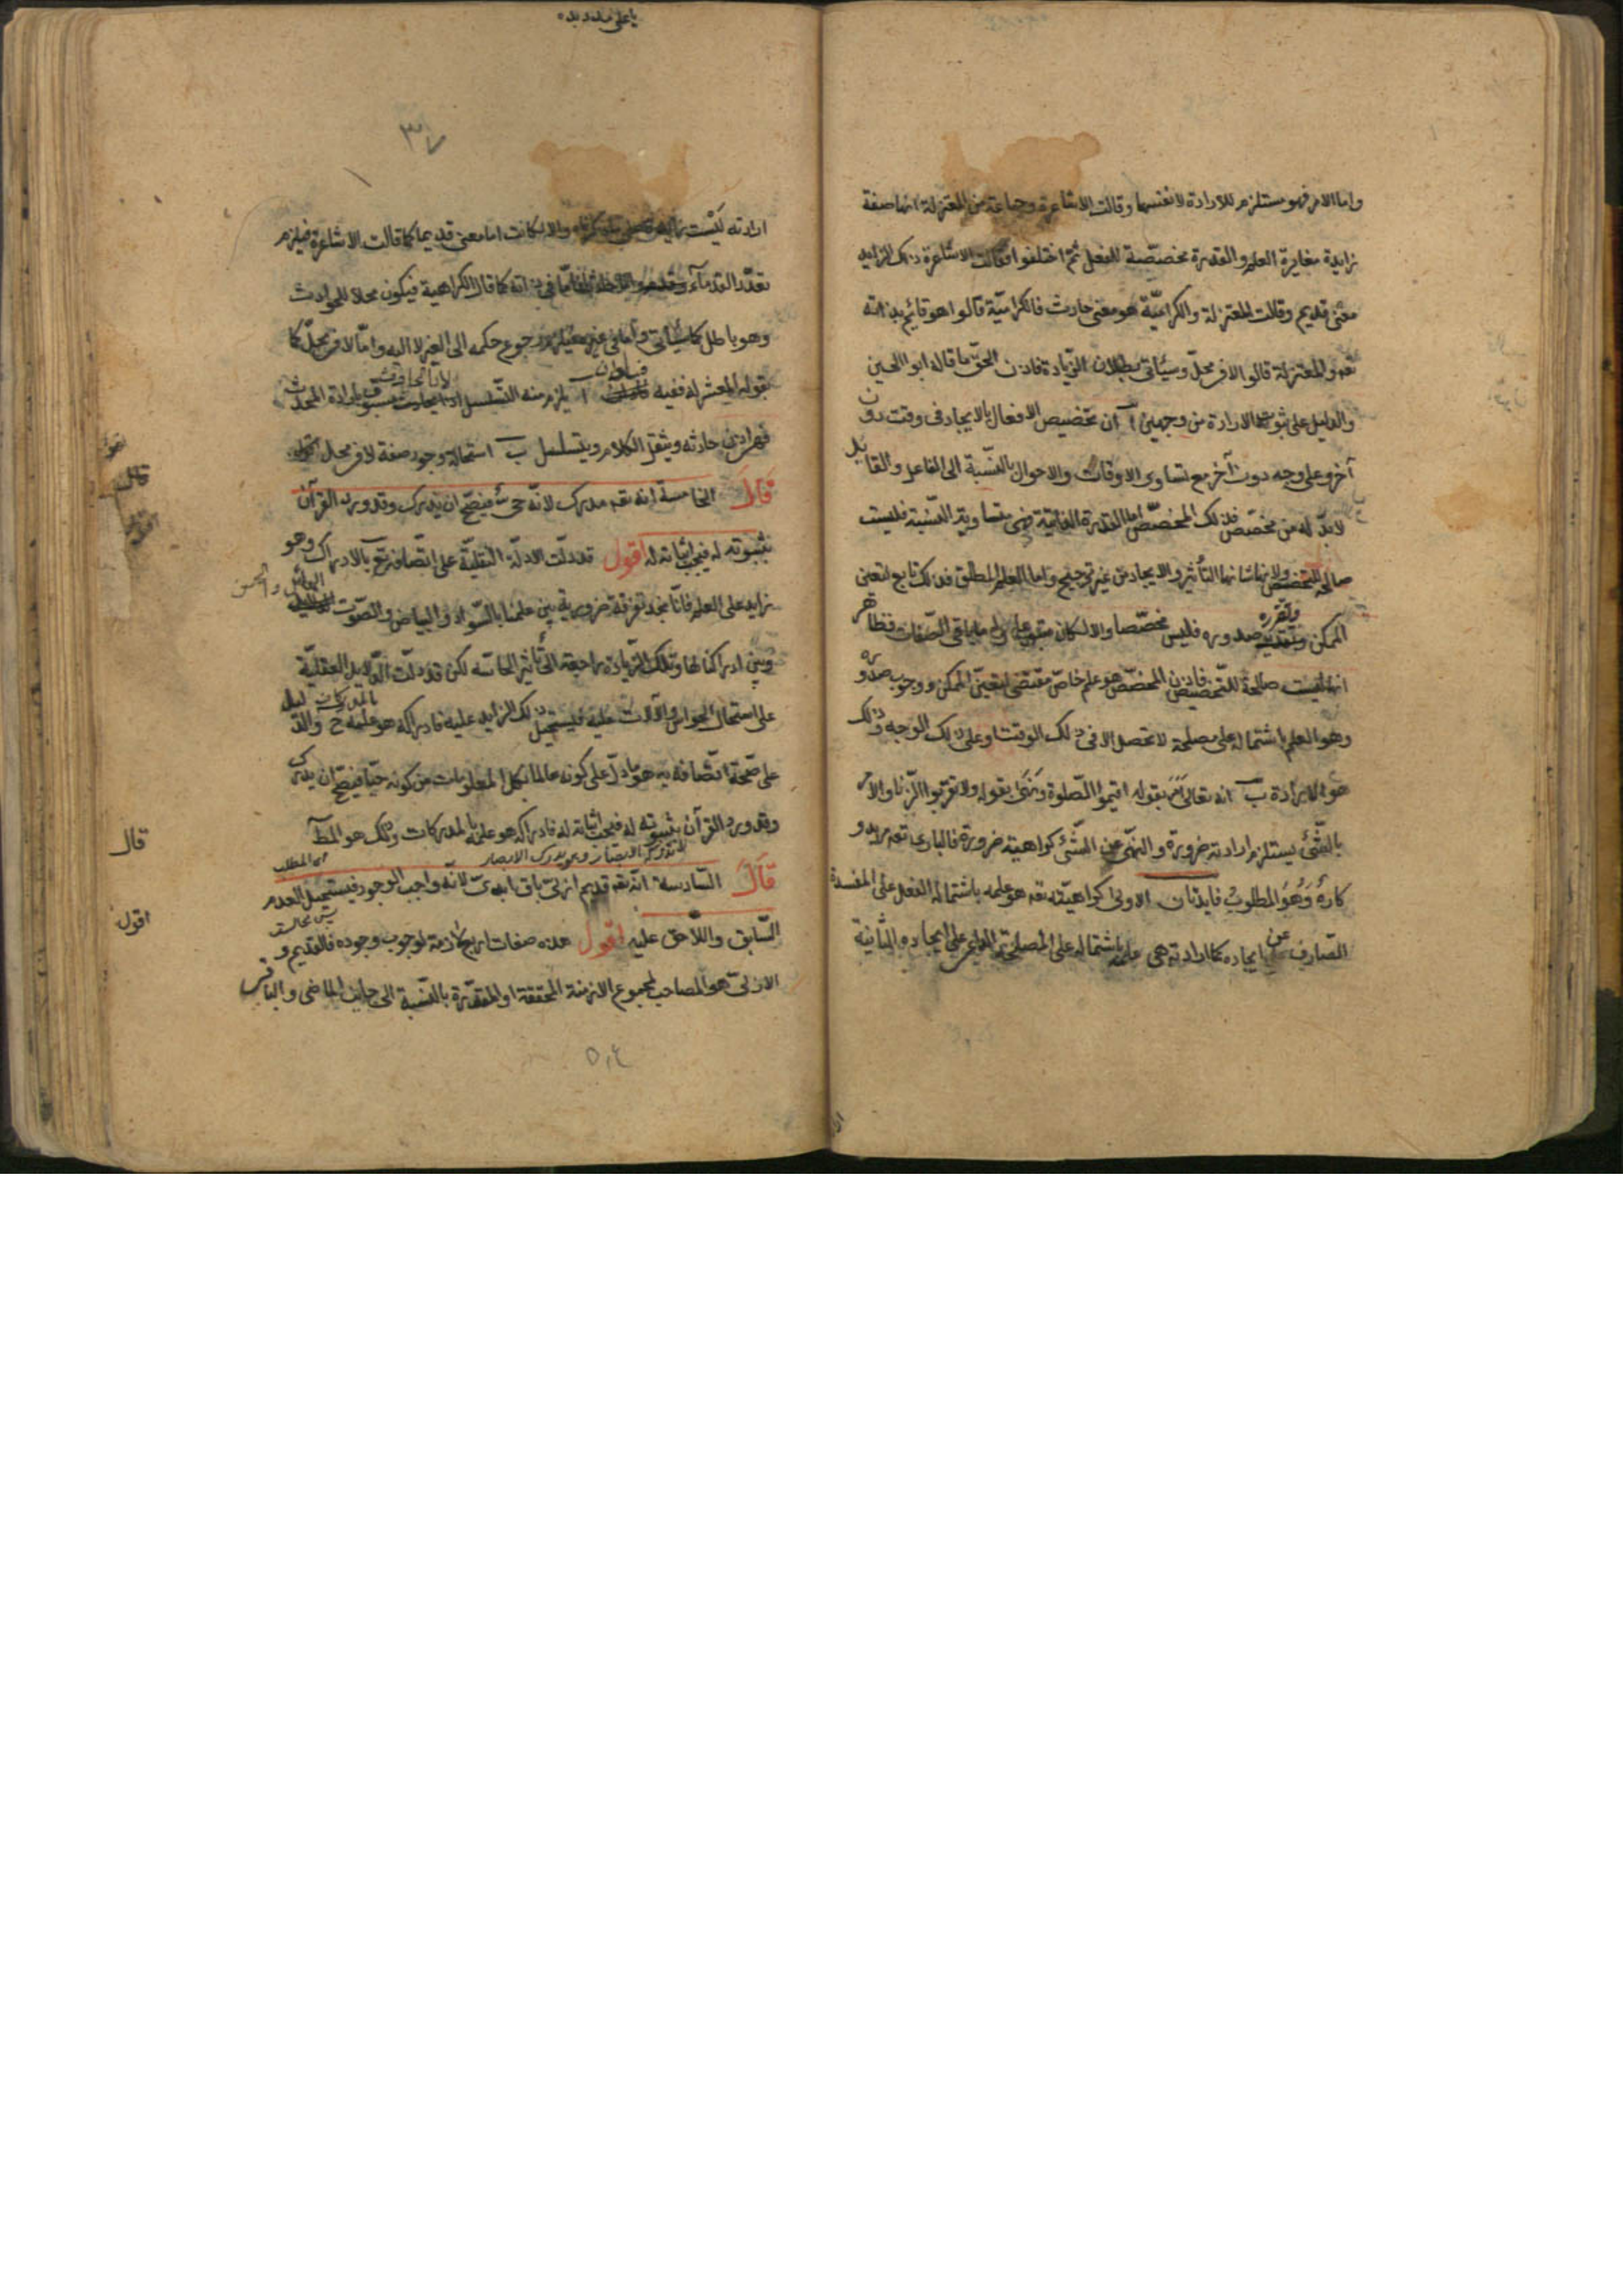 واما الامر فهو مستلزم للارادة لا نفسها وقالت الاشاعرة وجماعة من المعتزلة انها صفة
زايدة مغايرة العلم والقدرة مخصّصة للفعل ثم اختلفوا فقالت الاشاعرة ذلك الزايد
معنى قديم وقالت المعتزلة والكراميّة هو معنى حادث فالكراميّة قالوا هو قائم بذاته
تعه والمعتزلة قالوا لا فى محلّ وسيأتى بطلان الزيادة فاذن الحقّ ما قاله ابو الحسين
والدليل على ثبوت الارادة من وجهين آ ان تخصيص الافعال بالايجاد فى وقت دون
آخر وعلى وجه دون آخر مع تساوى الاوقات والاحوال بالنّسبة الى الفاعل والقابل
لابدّ له من مخصّص فذلك المخصّص اما القدرة الذاتية فهى متساوية النّسبة فليست
صالحة للتخصيص ولانها شانها التأثير والايجاد من غير ترجيح واما العلم المطلق فذلك تابع لتعين
وتقرره
الممكن صدوره فليس مخصّصا والا لكان متبوعا واما باقى الصّفات فظاهر
انها ليست صالحة للتّخصيص فاذن المخصّص هو علم خاصّ مقتضى لتعيّن الممكن ووجوب صدوره
وهو العلم باشتماله على مصلحة لا تحصل الا فى ذلك الوقت او على ذلك الوجه وذلك
هو الارادة ب انه تعالى أَمَرَ بقوله اقيموا الصّلوة ونَهَى بقوله ولا تقربوا الزّنا والامر
بالشّئ يستلزم ارادته ضرورة والنهى عن الشّئ كراهيته ضرورة فالبارى تعه مريد و
كارهٌ وَهُوَ المطلوبُ فايدتان الاولى كراهيّته تعه هو علمه باشتمال الفعل على المفسدة
الصّارف عن ايجاده كما ارادته هى علمه باشتماله على المصلحة الداعى على ايجاده الثّانية
ارادته لَيْست زايدة على ما ذكرناه والا لكانت اما معنى قديما كما قالت الاشاعرة فيلزم
تعدّد القدمآء فى ذاته كما قال الكراهية فيكون محلا للحوادث
وهو باطل كما سيأتى واما فى غيره فيلزم رجوع حكمه الى الغير لا اليه وامّا لا فى محلّ كما
يقوله المعتزلة ففيه فسادان آ يلزم منه التّسلسل لانّ الحادث مسبوق بارادة المحدث
فهى اذن حادثه وينقل الكلام ويتسلسل ب استحالة وجود صفة لا فى محل
قَالَ الخامسة انه تعه مدرك لانّه حىّ فيصحّ ان يدرك وقد ورد القرآن
بثبوته له فيجب اثباته له اقول قد دلّت الادلّة النّقليّة على اتّصافه تع بالادراك وهو
زايد على العلم فانّا نجد تفرقة ضرورية بين علمنا بالسّواد والبياض والصّوت الهائل والحسن
وبين ادراكنا لها وتلك الزّيادة راجعة الى تأثير الحاسّه لكن قد دلّت الدّلايل العقليّة
على استحالة الحواس والآلات عليه فيستحيل ذلك الزايد عليه فادراكه هو علمه ح بالمدركات والدّليل
على صّحة اتّصافه به هو ما دلّ على كونه عالما بكل المعلومات من كونه حيّا فيصحّ ان يدرك
وقد ورد القرآن بثبوته له فيجب اثباته له فادراكه هو علمه بالمدركات وذلك هو المطآ
لا تدركه الابصار وهو يدرك الابصار
اى المطلب
قَالَ السّادسة انّه تعه قديم ازلىّ باق ابدىّ لانّه واجب الوجود فيستحيل العدم
السّابق واللّاحق عليه اقول هذه صفات اربع لازمة لوجوب وجوده فالقديم و
الازلىّ هو المصاحب لمجموع الازمنة المحققة او المقدّرة بالنّسبة الى جانب الماضى والباقى
قال
قال
اقول